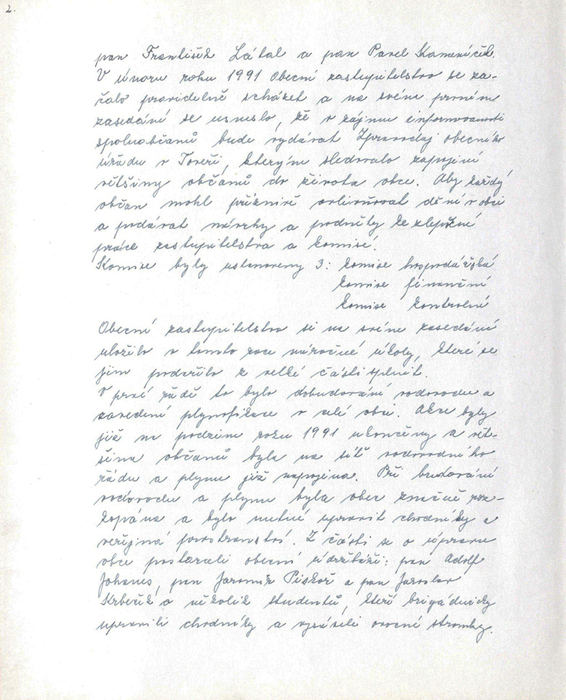 2.
pan František Látal a pan Pavel Kameníček.
V únoru roku 1991 Obecní zastupitelstvo se za-
čalo pravidelně scházet a na svém prvním
zasedání se usneslo, že v zájmu informovanosti
spoluobčanů bude vydávat Zpravodaj obecního
úřadu v Toveři, kterým sledovalo zapojení
většiny občanů do života obce. Aby každý
občan mohl příznivě ovlivňovat dění v obci
a podávat návrhy a podněty ke zlepšení
práce zastupitelstva a komise.
Komise byly ustanoveny 3: komise hospodářská
komise finanční
komise kontrolní
Obecní zastupitelstvo si na svém zasedání
uložilo v tomto roce náročné úkoly, které se
jim podařilo z velké části splnit.
V prvé řadě to bylo dobudování vodovodu a
zavedení plynofikace v celé obci. Akce byly
již na podzim roku 1991 ukončeny a vět-
šina občanů byla na síť vodovodního
řádu a plynu již napojena. Při budování
vodovodu a plynu byla obec značně roz-
kopána a bylo nutné upravit chodníky a
veřejná prostranství. Z části se o úpravu
obce postarali obecní údržbáři: pan Adolf
Johanes, pan Jaromír Piskoř a pan Jaroslav
a několik studentů, kteří brigádnicky
upravili chodníky a vysázeli ovocné stromky.